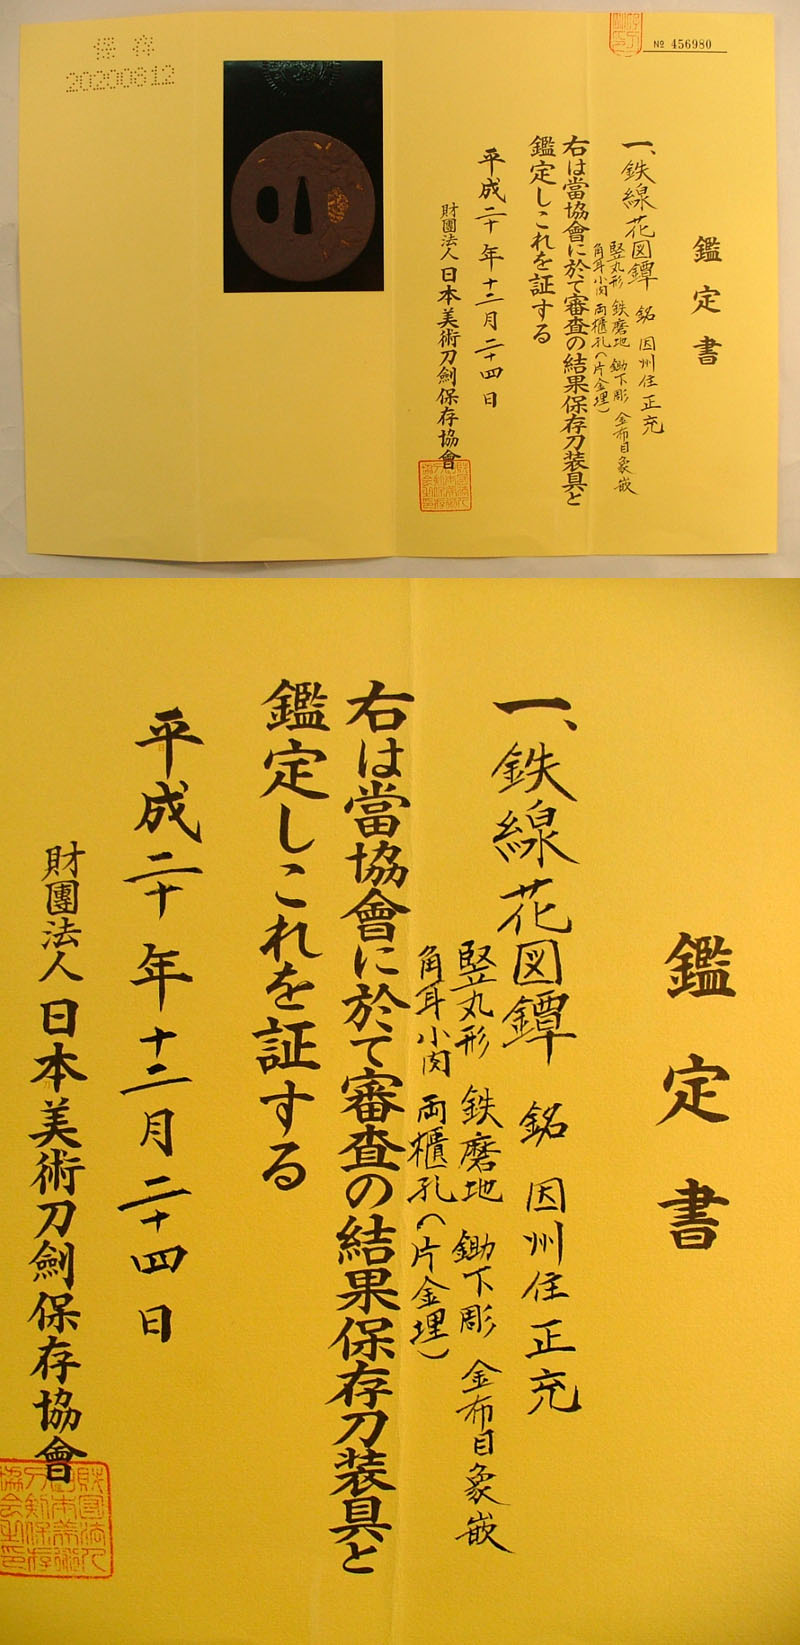 保存
20200812
№ 456980
鑑定書
一、鉄線花図鐔 銘 因州住正充
竪丸形 鉄磨地 鋤下彫 金布目象嵌
角耳小肉 両櫃孔(片金埋)
右は當協會に於て審査の結果保存刀装具と
鑑定しこれを証する
平成二十年十二月二十四日
財團法人日本美術刀劍保存協會
鑑定書
一、鉄線花図鐔 銘 因州住正充
竪丸形 鉄磨地 鋤下彫 金布目象嵌
角耳小肉 両櫃孔(片金埋)
右は當協會に於て審査の結果保存刀装具と
鑑定しこれを証する
平成二十年十二月二十四日
財團法人日本美術刀劍保存協會